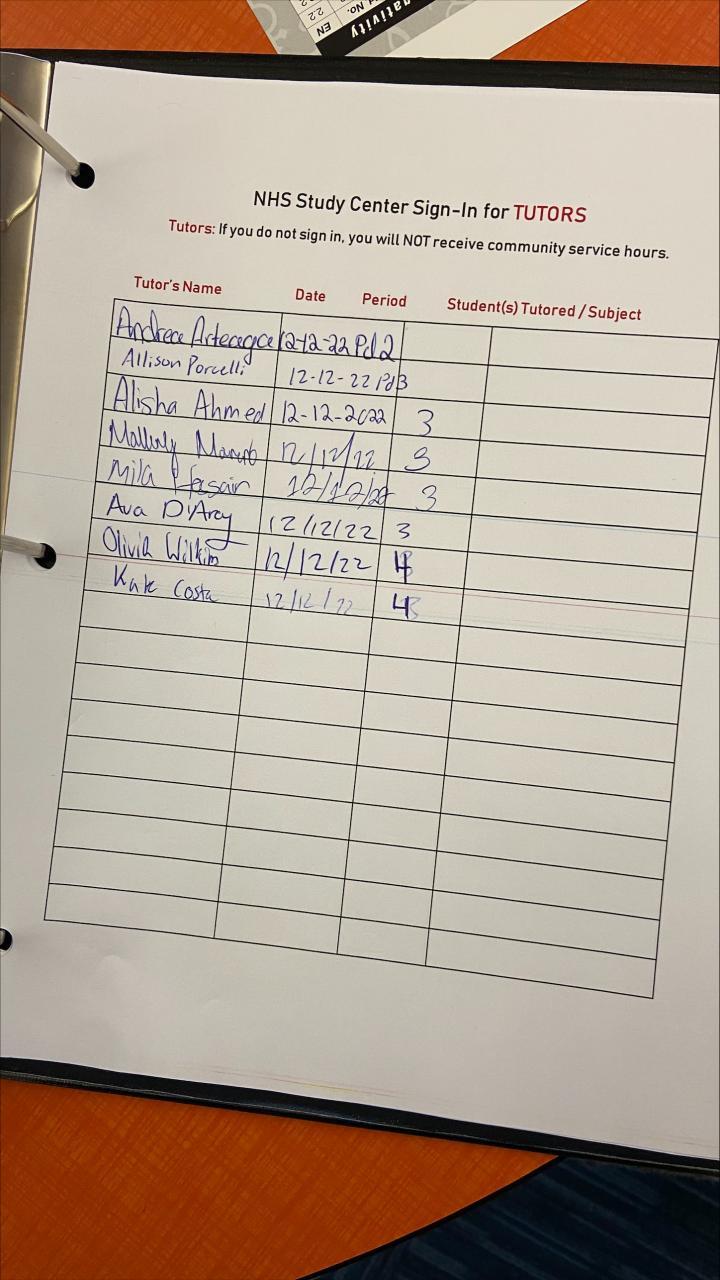 gativity
No.
EN
2.2
NHS Study Center Sign-In for TUTORS
Tutors: If you do not sign in, you will NOT receive community service hours.
Tutor's Name Date Period Student(s) Tutored / Subject
Andrea 12-12-22 Pd 2
Allison Porcelli 12-12-22 Pd3
Alisha Ahmed 12-12-2022 3
12/12/22 3
Mila 12/12/22 3
Ava D'Arcy 12/12/22 3
Olivia Wilkin 12/12/22 4
Kate Costa 12/12/22 4